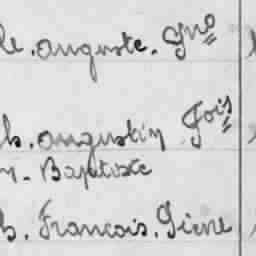 le. auguste. Jno
b. augustin Fois
n. Baptiste
b. Francois. Pierre